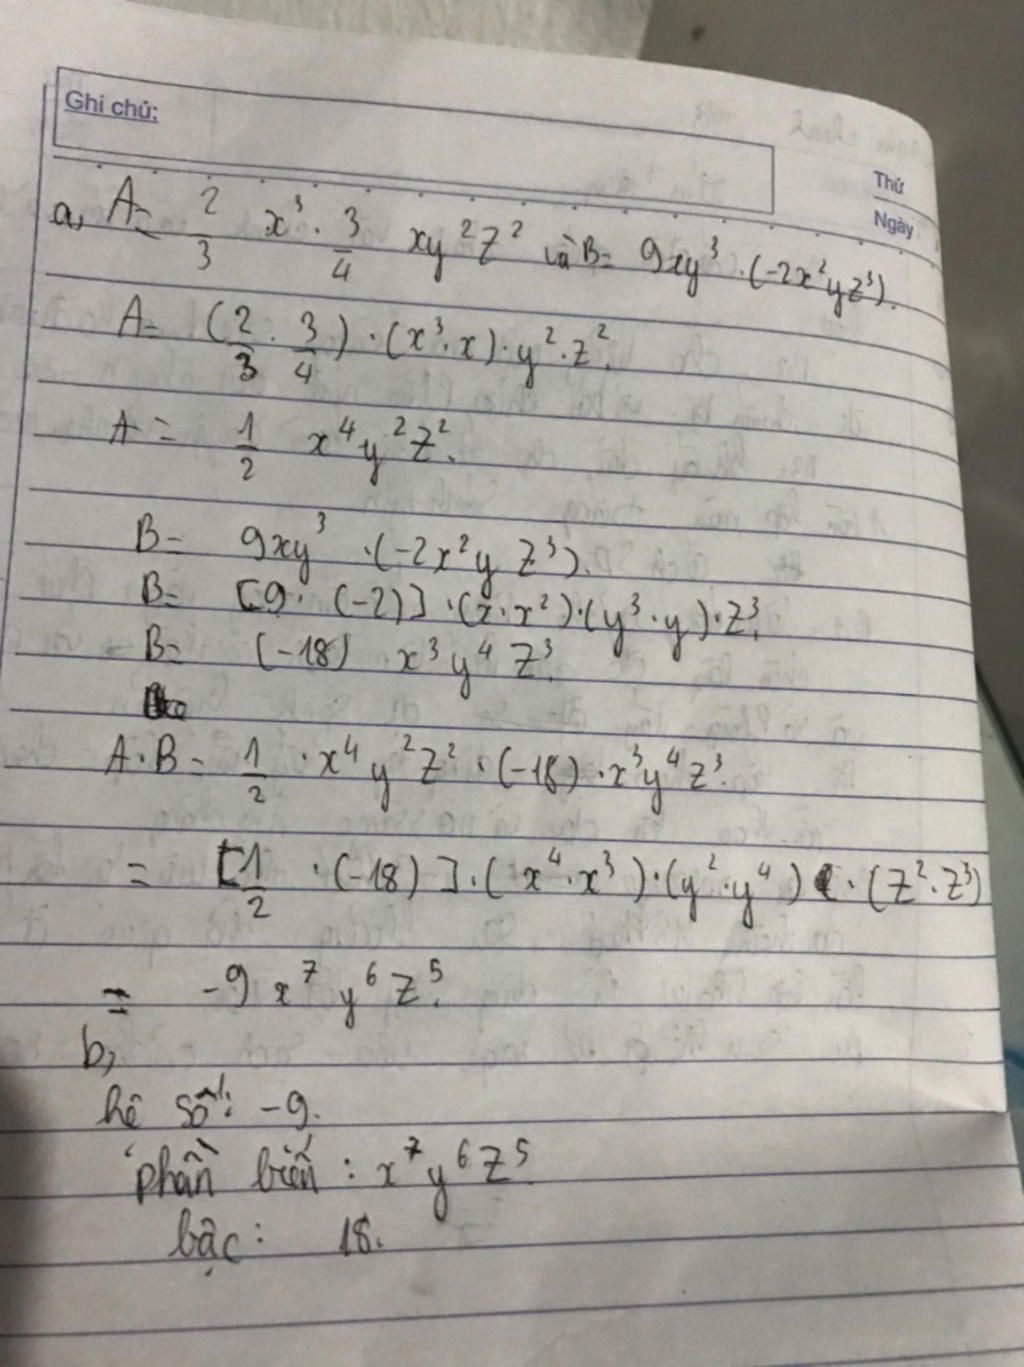 Ghi chú:
Thứ
Ngày
a, A= 2/3 x³ · 3/4 xy²z² và B= 9xy³ · (-2x²yz³).
A= (2/3 · 3/4) · (x³·x) · y² · z².
A= 1/2 x⁴y²z².
B= 9xy³ · (-2x²y z³).
B= [9 · (-2)] · (x · x²) · (y³ · y) · z³.
B= (-18) x³y⁴z³.
A·B= 1/2 · x⁴y²z² · (-18) · x³y⁴z³.
= [1/2 · (-18)] · (x⁴·x³) · (y²·y⁴) · (z²·z³)
= -9x⁷y⁶z⁵.
b,
hệ số: -9.
phần biến: x⁷y⁶z⁵.
bậc: 18.